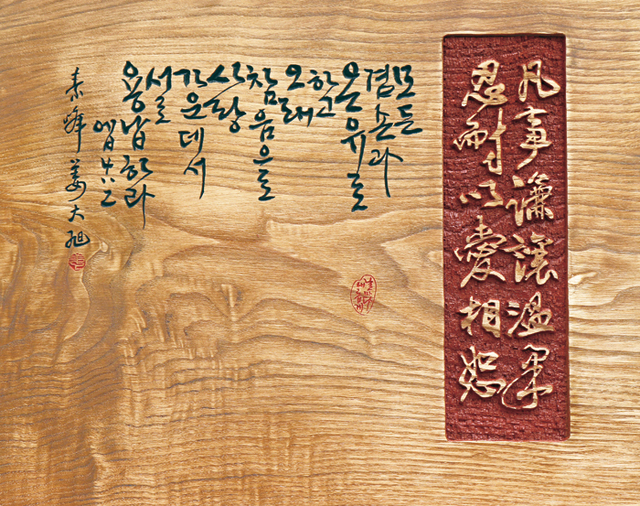 凡事謙讓溫柔
忍耐以愛相恕
모든
겸손과
온유로
하고
오래
참음으로
사랑
가운데서
서로
용납하라
엡
素峰 姜大旭